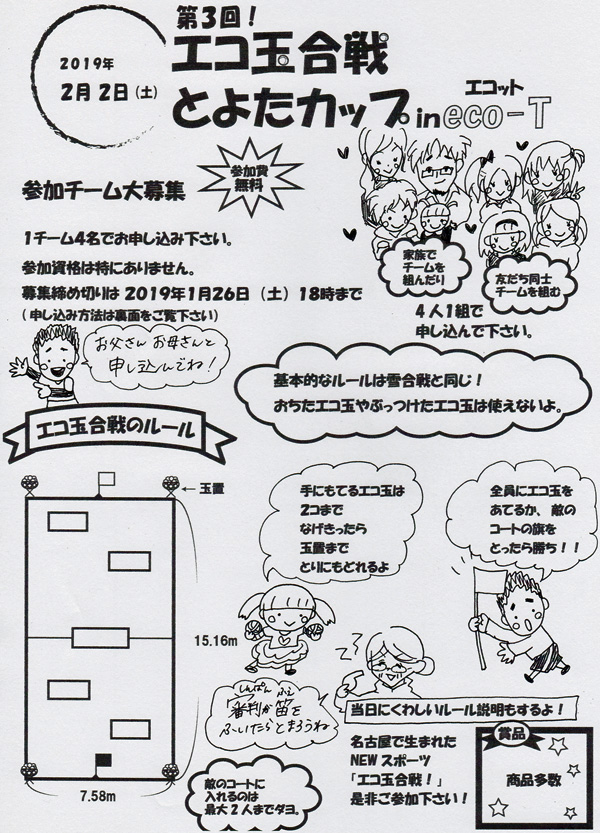 第3回！
2019年
2月2日（土）
エコ玉合戦
とよたカップ in eco-T
エコット
参加費
無料
参加チーム大募集
1チーム4名でお申し込み下さい。
参加資格は特にありません。
募集締め切りは 2019年1月26日（土）18時まで
（申し込み方法は裏面をご覧下さい）
家族で
チームを
組んだり
友だち同士
チームを組む
4人1組で
申し込んで下さい。
お父さん お母さんと
申し込んでね！
基本的なルールは雪合戦と同じ！
おちたエコ玉やぶっつけたエコ玉は使えないよ。
エコ玉合戦のルール
←玉置
手にもてるエコ玉は
2コまで
なげきったら
玉置まで
とりにもどれるよ
全員にエコ玉を
あてるか、敵の
コートの旗を
とったら勝ち！！
15.16m
7.58m
しんぱん ふえ
審判が笛を
ふいたらとまろうね
敵のコートに
入れるのは
最大2人までダヨ。
当日にくわしいルール説明もするよ！
名古屋で生まれた
NEWスポーツ
「エコ玉合戦！」
是非ご参加下さい！
賞品
商品多数